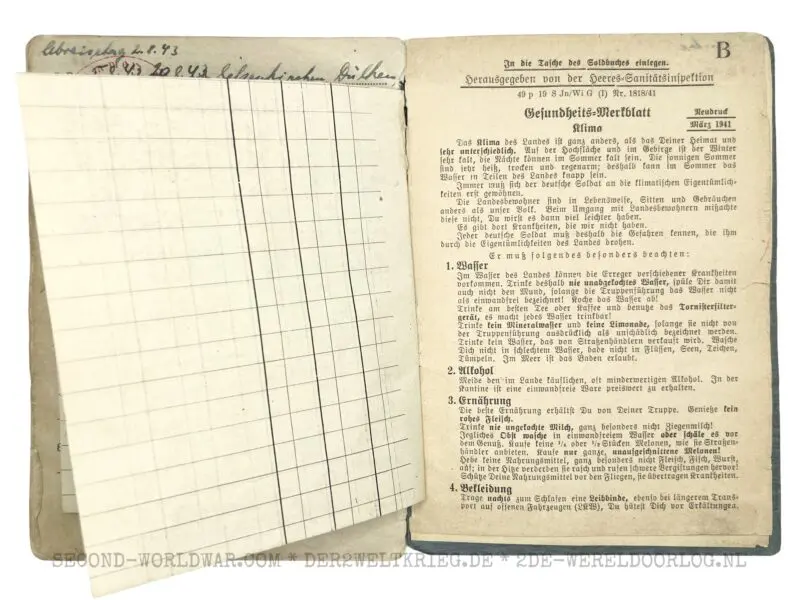 Abreisetag 2.8.43
20.8.43 Gelsenkirchen, Dülken,
B
In die Tasche des Soldbuches einlegen.
Herausgegeben von der Heeres-Sanitätsinspektion
49 p 19 S Jn/Wi G (I) Nr. 1818/41
Gesundheits-Merkblatt
Neudruck
März 1941
Klima
Das Klima des Landes ist ganz anders, als das Deiner Heimat und
sehr unterschiedlich. Auf der Hochfläche und im Gebirge ist der Winter
sehr kalt, die Nächte können im Sommer kalt sein. Die sonnigen Sommer
sind sehr heiß, trocken und regenarm; deshalb kann im Sommer das
Wasser in Teilen des Landes knapp sein.
Immer muß sich der deutsche Soldat an die klimatischen Eigentümlich-
keiten erst gewöhnen.
Die Landesbewohner sind in Lebensweise, Sitten und Gebräuchen
anders als unser Volk. Beim Umgang mit Landesbewohnern mißachte
diese nicht, Du wirst es dann viel leichter haben.
Es gibt dort Krankheiten, die wir nicht haben.
Jeder deutsche Soldat muß deshalb die Gefahren kennen, die ihm
durch die Eigentümlichkeiten des Landes drohen.
Er muß folgendes besonders beachten:
1. Wasser
Im Wasser des Landes können die Erreger verschiedener Krankheiten
vorkommen. Trinke deshalb nie unabgekochtes Wasser, spüle Dir damit
auch nicht den Mund, solange die Truppenführung das Wasser nicht
als einwandfrei bezeichnet! Koche das Wasser ab!
Trinke am besten Tee oder Kaffee und benutze das Tornisterfilter-
gerät, es macht jedes Wasser trinkbar!
Trinke kein Mineralwasser und keine Limonade, solange sie nicht von
der Truppenführung ausdrücklich als unschädlich bezeichnet werden.
Trinke kein Wasser, das von Straßenhändlern verkauft wird. Wasche
Dich nicht in schlechtem Wasser, bade nicht in Flüssen, Seen, Teichen,
Tümpeln. Im Meer ist das Baden erlaubt.
2. Alkohol
Meide den im Lande käuflichen, oft minderwertigen Alkohol. In der
Kantine ist eine einwandfreie Ware preiswert zu erhalten.
3. Ernährung
Die beste Ernährung erhältst Du von Deiner Truppe. Genieße kein
rohes Fleisch.
Trinke nie ungekochte Milch, ganz besonders nicht Ziegenmilch!
Jegliches Obst wasche in einwandfreiem Wasser oder schäle es vor
dem Genuß. Kaufe keine 1/4 oder 1/2 Stücken Melonen, wie sie Straßen-
händler anbieten. Kaufe nur ganze, unaufgeschnittene Melonen!
Hebe keine Nahrungsmittel, ganz besonders nicht Fleisch, Fisch, Wurst,
auf; in der Hitze verderben sie rasch und rufen schwere Vergiftungen hervor!
Schütze Deine Nahrungsmittel vor den Fliegen, sie übertragen Krankheiten.
4. Bekleidung
Trage nachts zum Schlafen eine Leibbinde, ebenso bei längerem Trans-
port auf offenen Fahrzeugen (LKW), Du hütest Dich vor Erkältungen.
SECOND-WORLDWAR.COM * DER2WELTKRIEG.DE * 2DE-WERELDOORLOG.NL